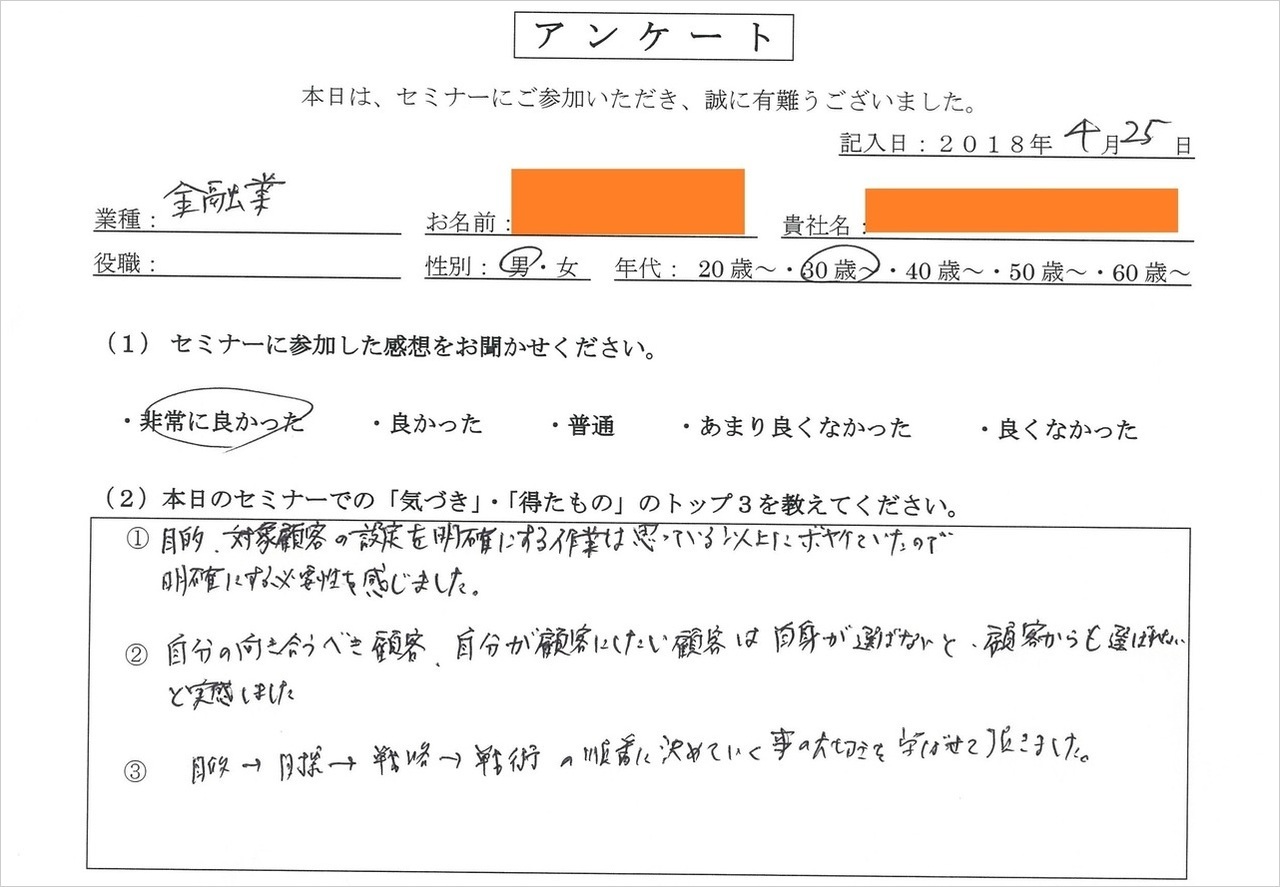 アンケート
本日は、セミナーにご参加いただき、誠に有難うございました。
記入日：２０１８年 4月25日
業種：金融業 お名前： 貴社名：
役職： 性別：男・女 年代：20歳～・30歳～・40歳～・50歳～・60歳～
（1）セミナーに参加した感想をお聞かせください。
・非常に良かった ・良かった ・普通 ・あまり良くなかった ・良くなかった
（2）本日のセミナーでの「気づき」・「得たもの」のトップ３を教えてください。
① 目的、対象顧客の設定を明確にする作業は思っている以上にボヤけていたので
明確にする必要性を感じました。
② 自分の向き合うべき顧客、自分が顧客にしたい顧客は自身が選ばないと、顧客からも選ばれない
と実感しました
③ 目的→目標→戦略→戦術の順番に決めていく事の大切さを学ばせて頂きました。